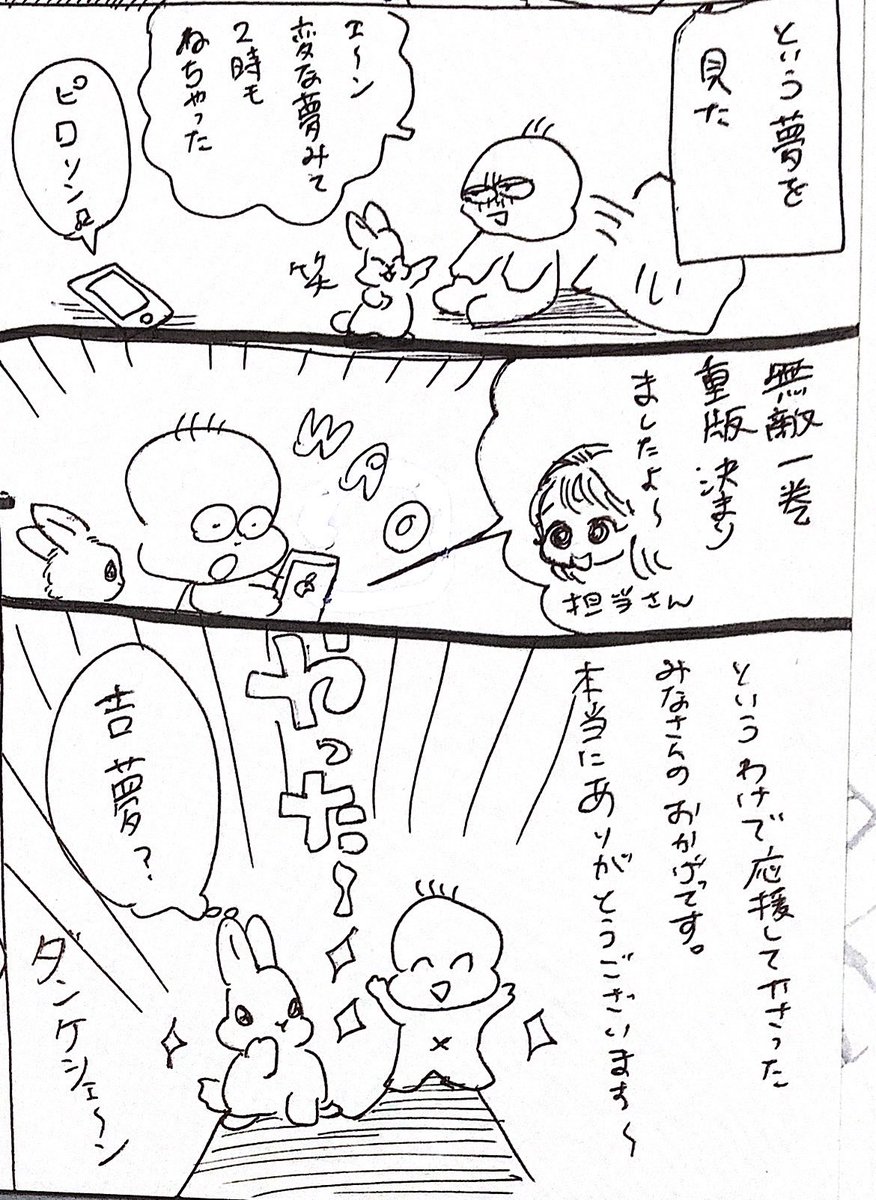 という夢を
見た
エ〜ン
変な夢みて
2時も
ねちゃった
笑
ピロリン♪
無敵一巻
重版決まり
ましたよ〜
担当さん
WAO
というわけで応援して下さった
みなさんのおかげです。
本当にありがとうございます〜
やったー
吉夢?
ダンケシェ〜ン